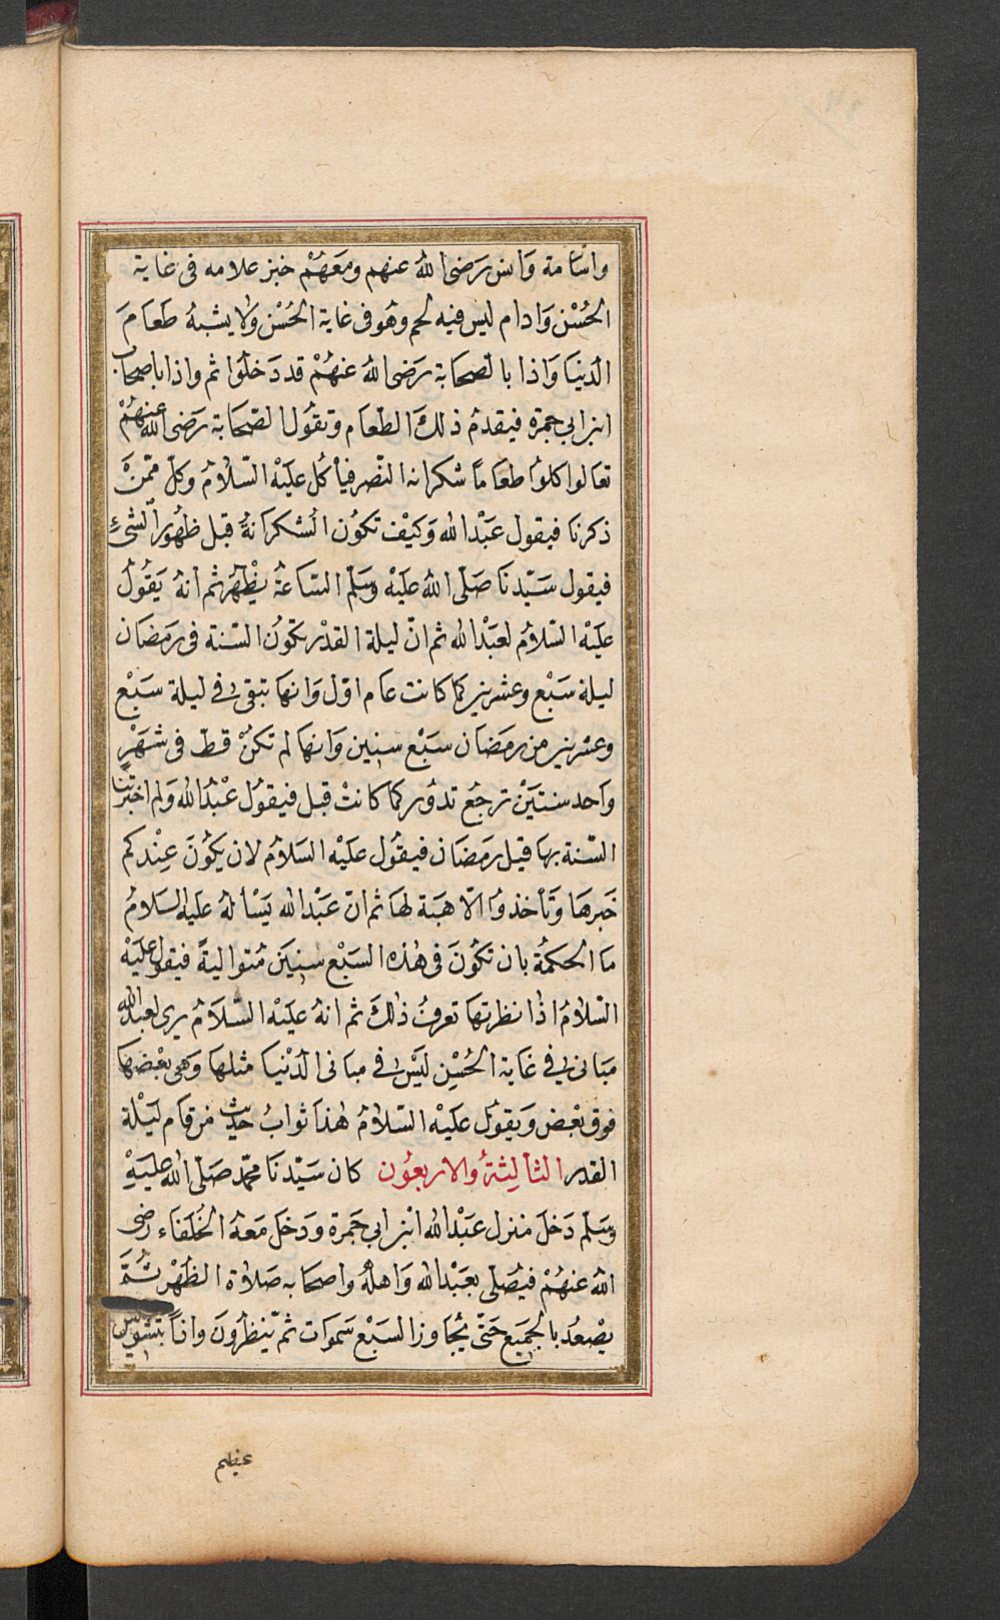 واسامة وانس رَضى اللهُ عنهم ومَعَهُمْ خبز علامه فى غاية
الحُسْن وَادام ليس فيه لحم وهُو فى غاية الحُسْن وَلا يشبهُ طَعَام
الدّنيَا وَاذا بالصّحَابة رَضى اللهُ عنهُمْ قد دَخلُوا ثم واذا باصحاب
ابن ابى جمرَة فيقدمُ ذلكَ الطّعام وتقوُل الصّحَابة رَضى الله عنهُمْ
تعالوا كلوُا طعَاماً شكرانه النصر فيأكُل عليْه السّلامُ وكلّ ممّنْ
ذكرنا فيقول عَبْد الله وَكيْف تكوُن الشكرَانةُ قبل ظهُور الشئِ
فيقول سَيّدنَا صَلّى اللهُ عليْه وسَلم السّاعَة يظْهَر ثم انهُ يَقُولُ
عليْه السّلامُ لعَبْد الله ثم انّ ليلة القدْر تكوُن السّنة فى رَمَضَان
ليلة سَبْع وعشرين كما كانت عَام اوّل وَانها تبقى فى ليلة سَبْع
وعشرين من رمَضَان سَبْع سنين وَانها لم تكنْ قط فى شهْرٍ
وَاحد سنتَيْن ترجُع تدوُر كما كانتْ قبل فيقوُل عبْدُ الله وَلم اخبرتنا
السّنة بها قبل رمَضَان فيقُول عليْه السَلامُ لان يكوُنَ عِنْدكم
خَبرهَا وَتأخذوُا الاهبَة لهَا ثم انّ عَبْد الله يَسْألهُ عليْه السَلامُ
ما الحكمُة بان تكوُنَ فى هٰذه السَبْع سنيَن مُتواليةً فيقول عليْه
السّلامُ اذا نظرتهَا تعرفُ ذٰلكَ ثم انهُ عليْه السّلَامُ يرى لعبد الله
مَبَانى فى غَاية الحُسْنِ ليْسَ فى مبَانى الدّنيَا مثلهَا وَهى بعْضهَا
فوق بعْض وَيقوُل عَليْه السّلامُ هٰذا ثوابُ حديث من قام ليْلة
القدر الثالِثةُ والاربعوُن كان سَيّدنَا محمّد صَلى اللهُ عليْهِ
وسَلم دَخلَ منزل عَبْد الله ابْن ابى جَمرة وَدخلَ مَعهُ الخُلفَاء رضى
اللهُ عنهُمْ فيُصَلى بعَبْد الله وَاهلهُ واصحَابه صَلاة الظهْر ثُمَّ
يصْعدُ بالجميَع حَتّى يُجاوز السَبْع سَموَات ثمّ ينظرُونَ واذاً بتشويش
عظيم